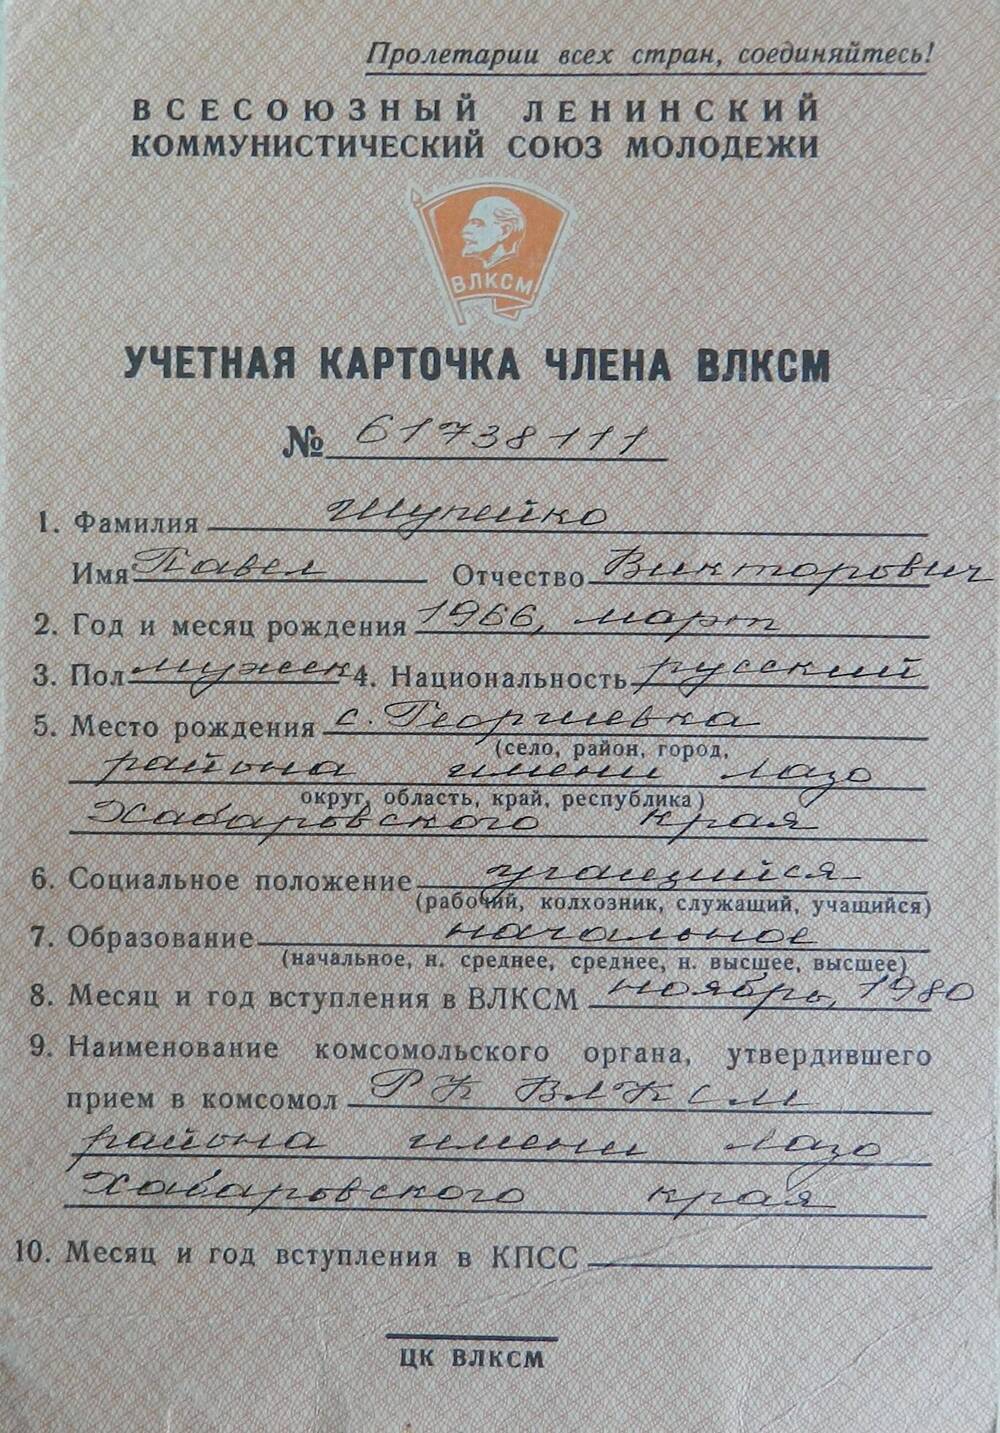 Пролетарии всех стран, соединяйтесь!
ВСЕСОЮЗНЫЙ ЛЕНИНСКИЙ
КОММУНИСТИЧЕСКИЙ СОЮЗ МОЛОДЕЖИ
ВЛКСМ
УЧЕТНАЯ КАРТОЧКА ЧЛЕНА ВЛКСМ
№ 61738111
1. Фамилия Шупейко
Имя Павел Отчество Викторович
2. Год и месяц рождения 1966, март
3. Пол мужск 4. Национальность русский
5. Место рождения с. Георгиевка
(село, район, город,
района имени Лазо
округ, область, край, республика)
Хабаровского края
6. Социальное положение учащийся
(рабочий, колхозник, служащий, учащийся)
7. Образование начальное
(начальное, н. среднее, среднее, н. высшее, высшее)
8. Месяц и год вступления в ВЛКСМ ноябрь, 1980
9. Наименование комсомольского органа, утвердившего
прием в комсомол РК ВЛКСМ
района имени Лазо
Хабаровского края
10. Месяц и год вступления в КПСС
ЦК ВЛКСМ